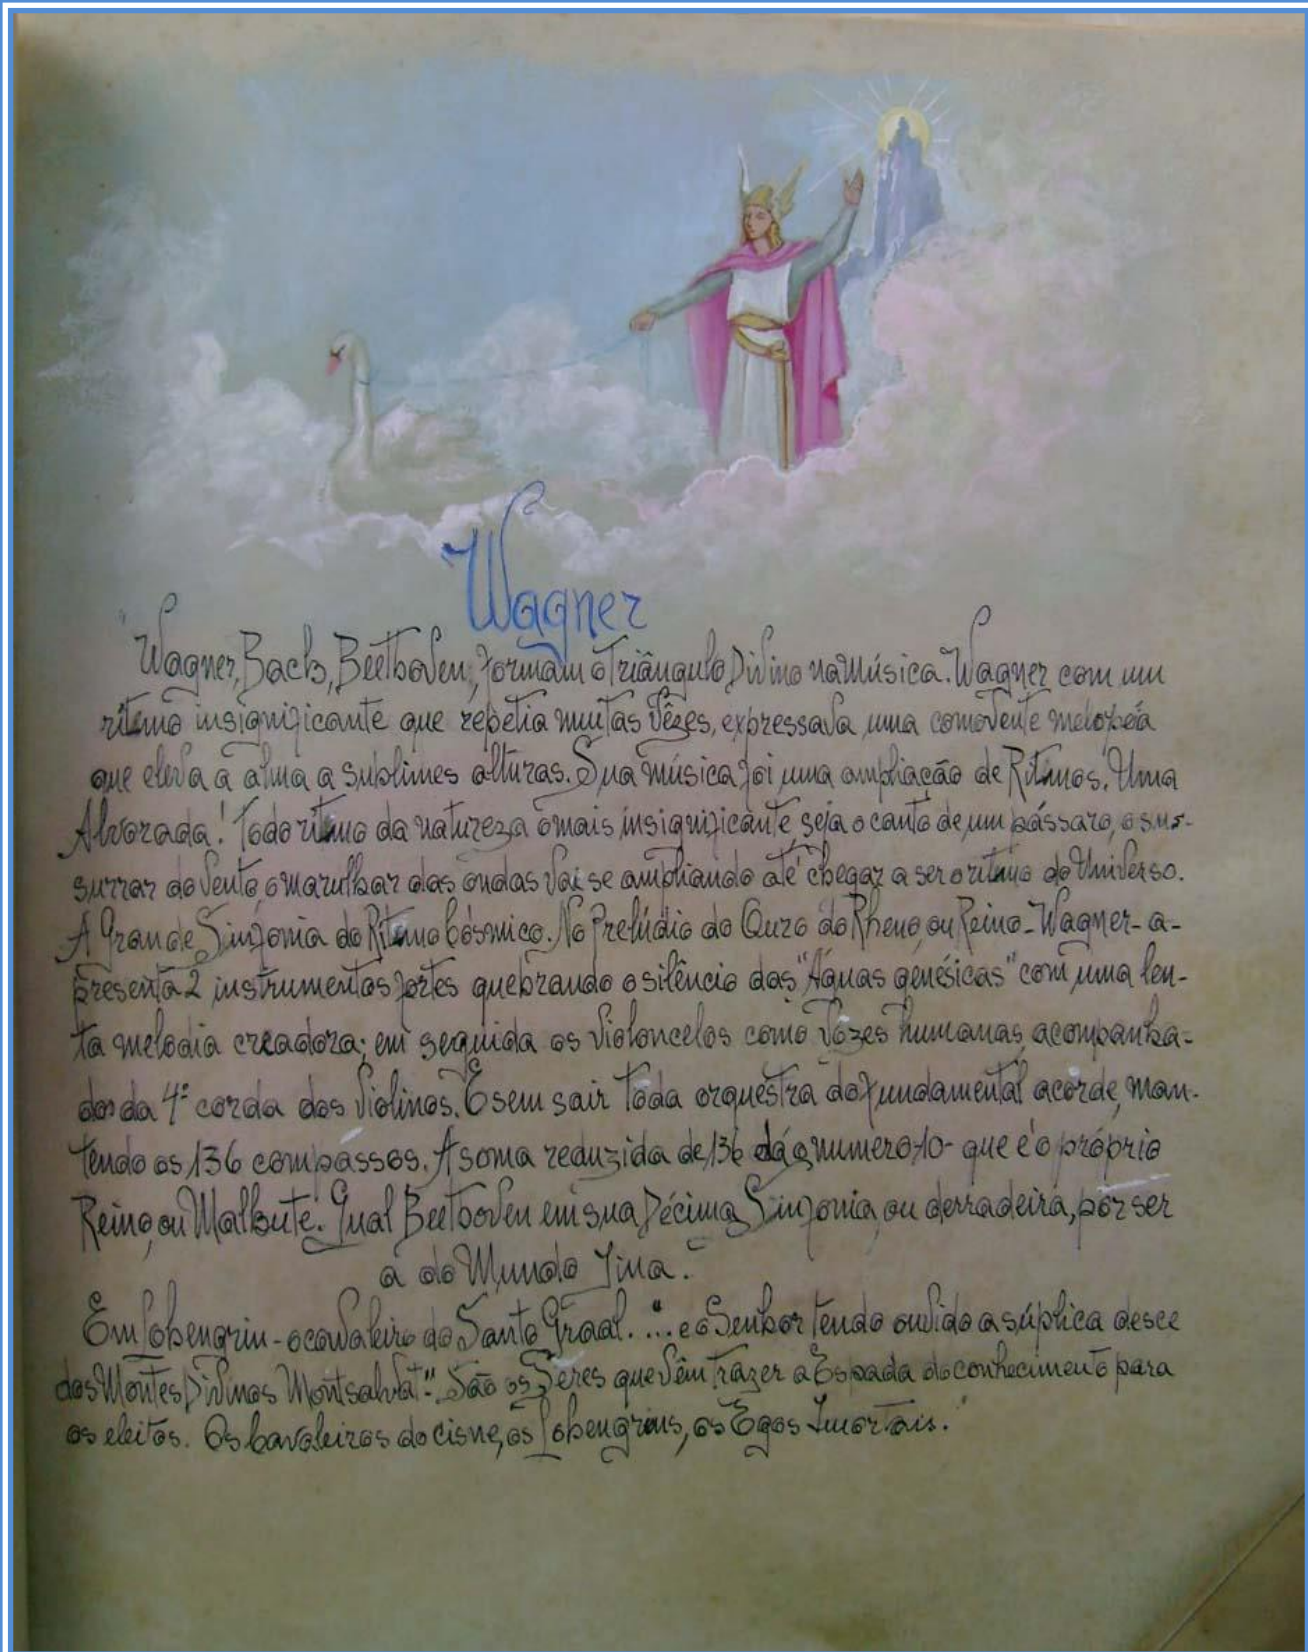 Wagner
"Wagner, Bach, Beethoven, formam o Triângulo Divino na Música. Wagner com um
ritimo insignificante que repetia muitas vêzes, expressava uma comovente melopéa
que eleva a alma a sublimes alturas. Sua música foi uma ampliação de Ritimos. Uma
Alvorada! Todo ritimo da natureza o mais insignificante, seja o canto de um pássaro, o sus-
surrar do vento, o marulhar das ondas vai se ampliando até chegar a ser o ritimo do Universo.
A Grande Sinfonia do Ritimo Cósmico. No Prelúdio do Ouro do Rheno, ou Reino - Wagner - a-
presenta 2 instrumentos fortes quebrando o silêncio das "Águas genésicas" com uma len-
ta melodia creadora; em seguida os violoncelos como vózes humanas, acompanha-
dos da 4ª corda dos violinos. E sem sair toda orquestra do fundamental acorde, man-
tendo os 136 compassos. A soma reduzida de 136 dá o numero 10 - que é o próprio
Reino, ou Malkute. Qual Beethoven em sua Décima Sinfonia, ou derradeira, por ser
a do Mundo Jina."
Em Lohengrin - o cavaleiro do Santo Graal. "... e o Senhor tendo ouvido a súplica desce
dos Montes Divinos Montsalvat". São os Seres que vêm trazer a Espada do conhecimento para
os eleitos. Os Cavaleiros do cisne, os Lohengrins, os Egos Imortais."